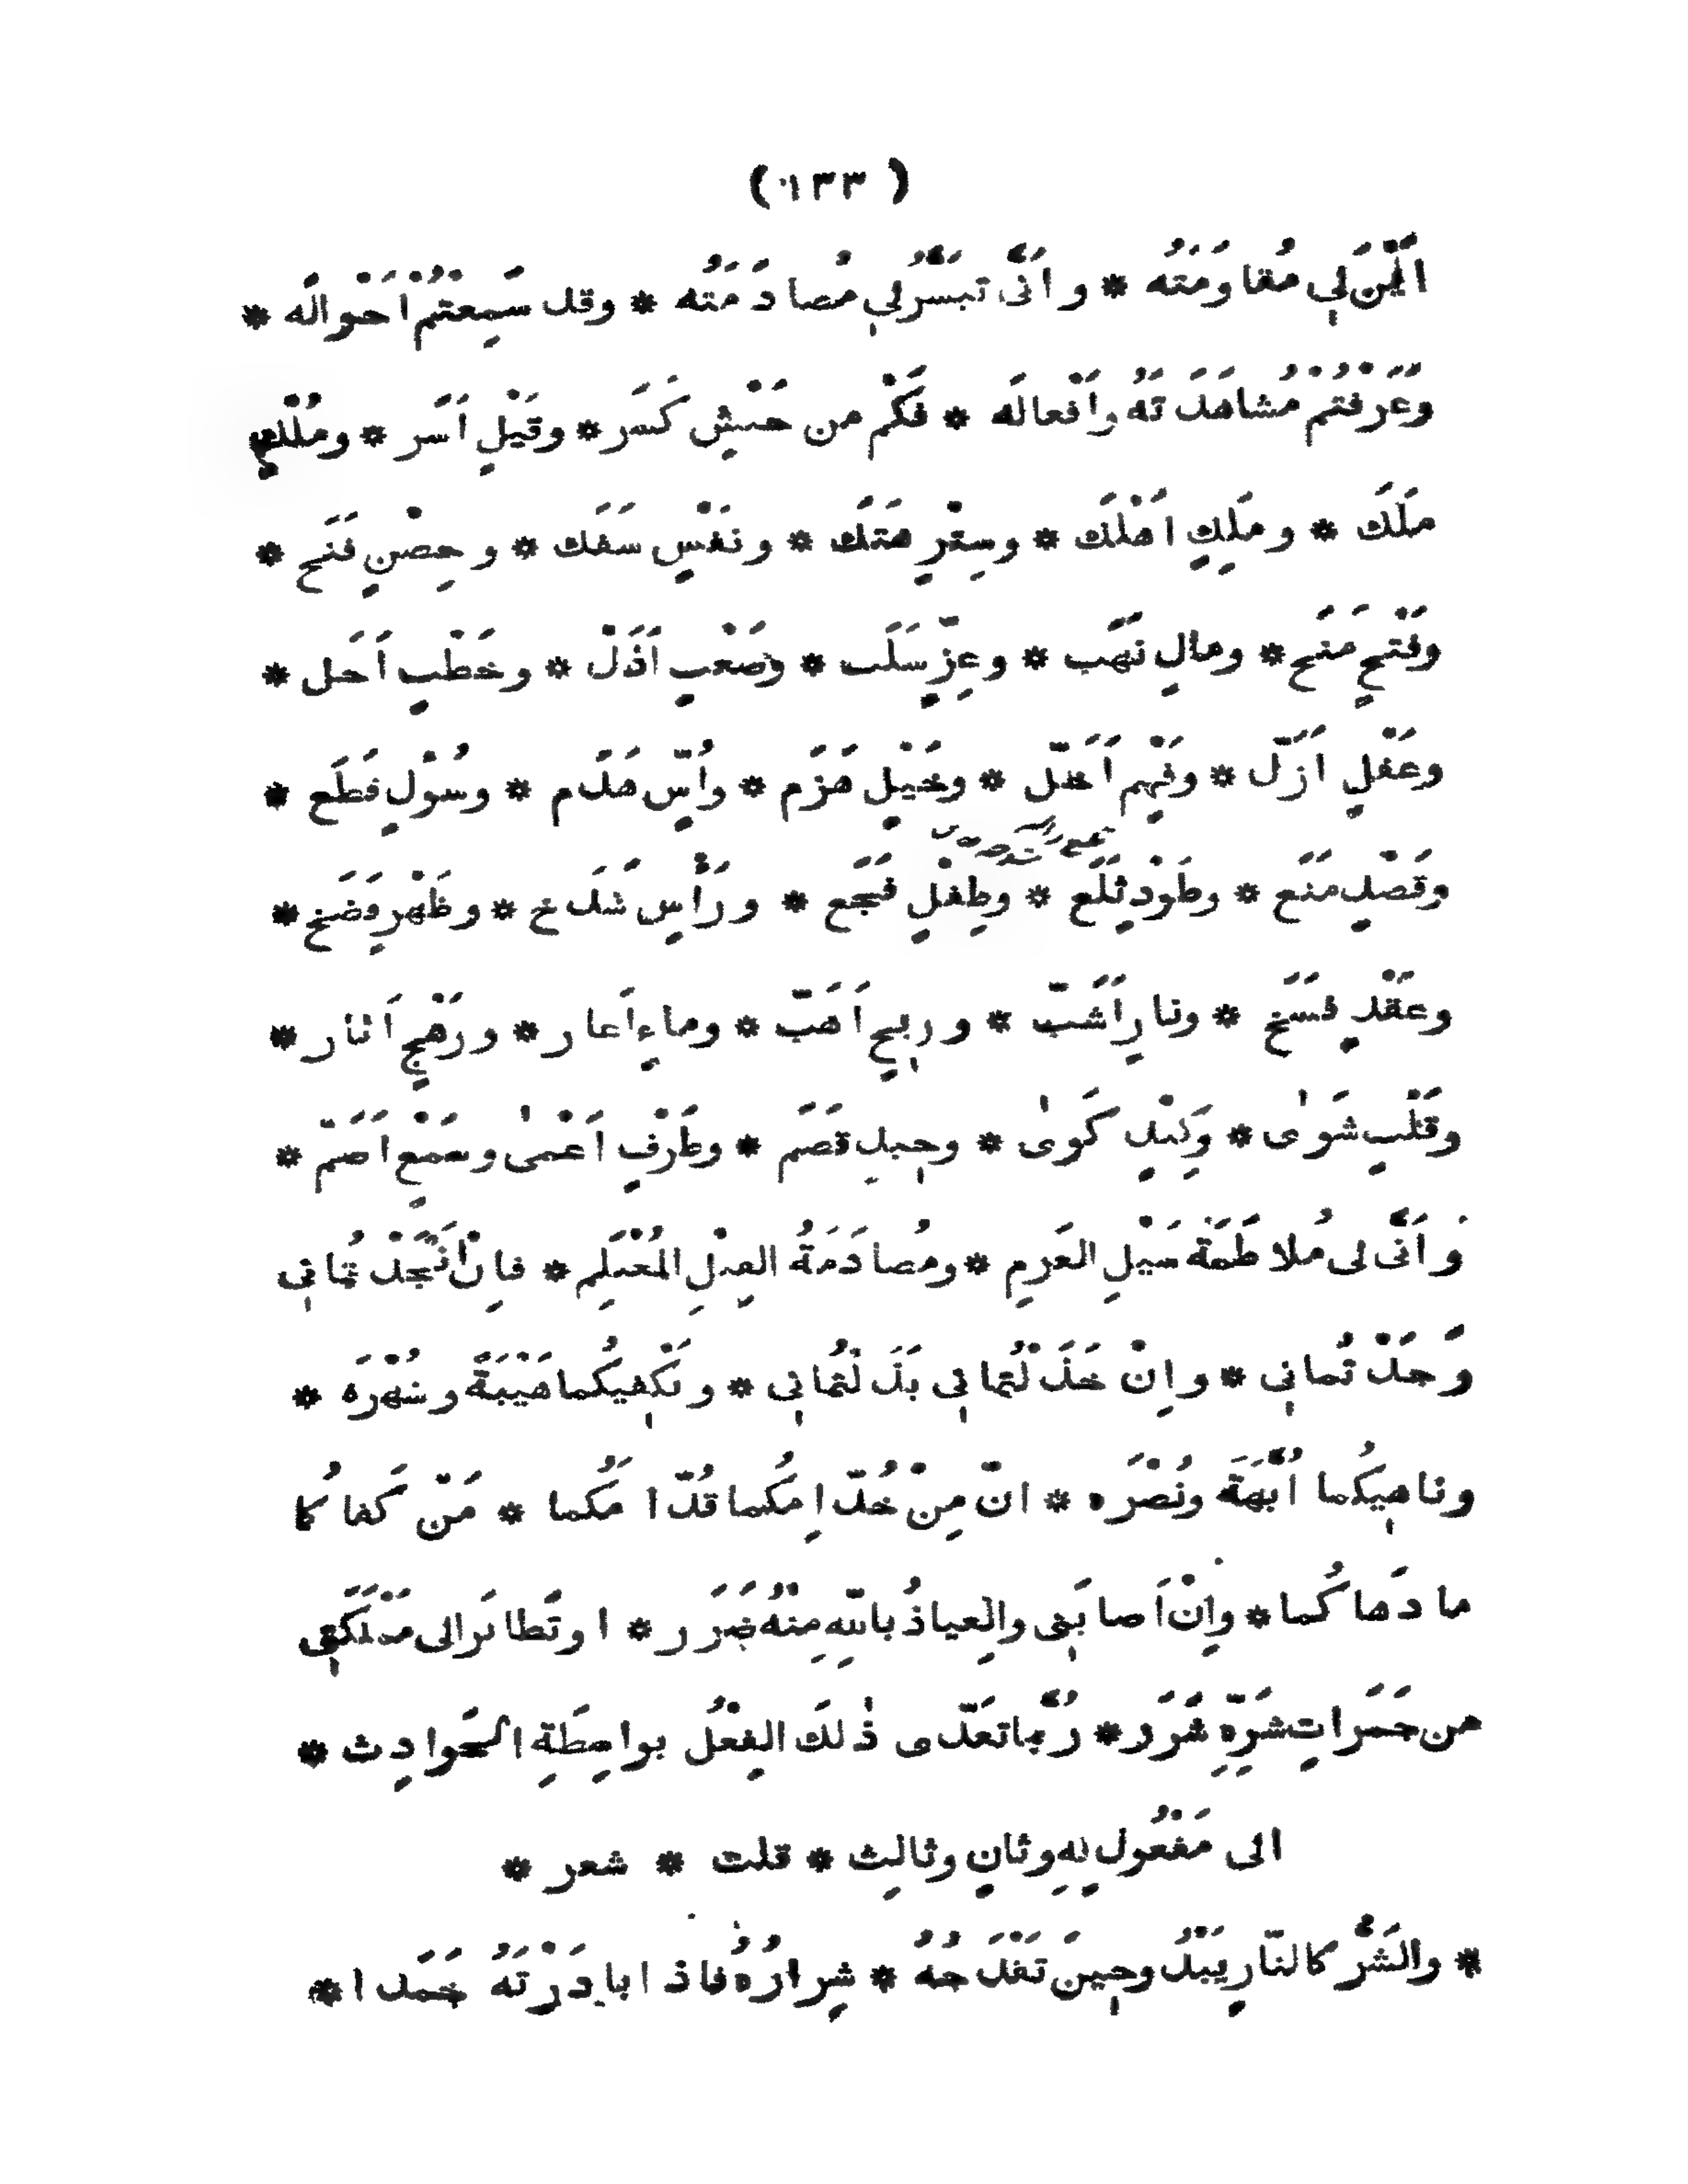 ( ١٣٣ )
اَيْنَ لِي مُقاوَمَتُه * واَنّٰى تَيَسَّرُ لِي مُصادَمَتُه * وقد سَمِعْتُمْ اَحْوالَه *
وَعَرَفْتُمْ مُشاهَدَتَهُ واَفْعالَه * فكَمْ من جَيْشٍ كَسَر * وقَيْلٍ اَسَر * ومُلْكٍ
مَلَك * ومَلِكٍ اَهْلَك * وسِتْرٍ هَتَك * ونَفْسٍ سَفَك * وحِصْنٍ فَتَح *
وفَتْحٍ مَنَح * ومالٍ نَهَب * وعِزٍّ سَلَب * وصَعْبٍ اَذَلْ * وخَطْبٍ اَحَل *
وعَقْلٍ اَزَلّ * وفَهْمٍ اَضَلّ * وخَيْلٍ هَزَم * واُسٍّ هَدَم * وسُوْلٍ قَطَع *
وقَصْدٍ مَنَع * وطَوْدٍ ثَلَع * وطِفْلٍ فَجَع * ورَأْسٍ شَدَخ * وظَهْرٍ فَضَخ *
وعَقْدٍ فَسَخ * ونارٍ اَشَبّ * ورِيحٍ اَهَبّ * وماءٍ اَغار * ورَهْجٍ اَثار *
وقَلْبٍ شَوٰى * وكَبِدٍ كَوٰى * وجِيدٍ قَصَم * وطَرْفٍ اَعْمٰى وسَمْعٍ اَصَمّ *
وَاَنّٰى لى مُلاطَمَةُ سَيْلِ العَرِمِ * ومُصادَمَةُ الفِيْلِ المُغْتَلِمِ * فاِنْ اَنْجَدْتُمانِى
وَجَدْتُمانِى * واِنْ خَذَلْتُمانِى بَدَلْتُمانِى * وتَكْفِيكُما هَيْبَةً وشُهْرَه *
وناهِيكُما اُبَّهَةً ونُصْرَه * انّ مِنْ خُدّامِكُما قُدّامَكُما * مَنْ كَفاكُما
ما دَهاكُما * واِنْ اَصابَنِى والعِياذُ باللهِ مِنْهُ ضَرَر * اوتَطايَر الى مَمْلَكَتِى
من جَمَراتِ شَرِّهِ شَرَر * رُبَّما تعَدّى ذٰلكَ الفِعْلُ بواسِطَةِ الحَوادِث *
الى مَفْعُولٍ بِهِ وثانٍ وثالِث * قلت * شعر *
* والشَرُّ كالنّارِ يَبْدُو حِينَ تَقْدَحُهُ * شِرارُهُ فاذا بادَرْتَهُ خَمَدا *